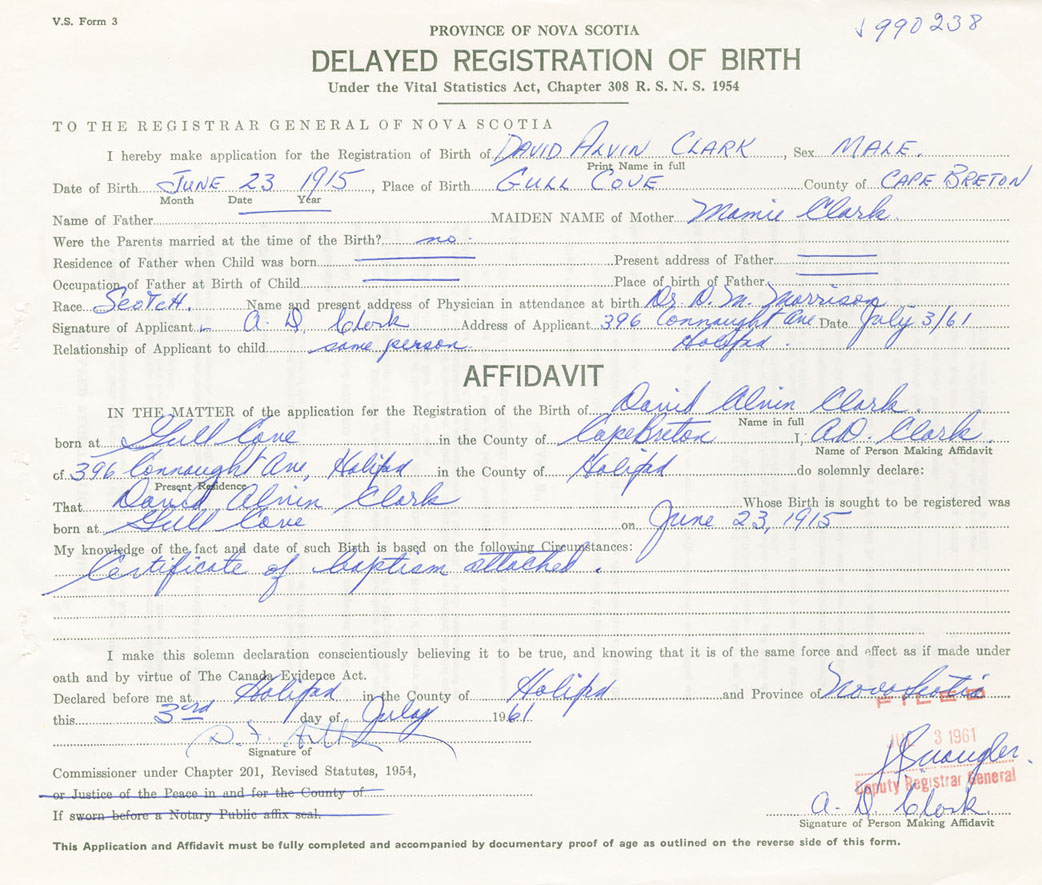 V.S. Form 3
990238
PROVINCE OF NOVA SCOTIA
DELAYED REGISTRATION OF BIRTH
Under the Vital Statistics Act, Chapter 308 R. S. N. S. 1954
TO THE REGISTRAR GENERAL OF NOVA SCOTIA
I hereby make application for the Registration of Birth of DAVID ALVIN CLARK, Sex MALE.
Print Name in full
Date of Birth JUNE 23 1915, Place of Birth GULL COVE County of CAPE BRETON
Month Date Year
Name of Father MAIDEN NAME of Mother Mamie Clark.
Were the Parents married at the time of the Birth? no.
Residence of Father when Child was born Present address of Father
Occupation of Father at Birth of Child Place of birth of Father
Race SCOTCH. Name and present address of Physician in attendance at birth Dr. D. M. Morrison
Signature of Applicant A. D. Clark Address of Applicant 396 Connaught Ave Date July 3/61
Relationship of Applicant to child same person. Halifax.
AFFIDAVIT
IN THE MATTER of the application for the Registration of the Birth of David Alvin Clark.
Name in full
born at Gull Cove in the County of Cape Breton I, A.D. Clark.
Name of Person Making Affidavit
of 396 Connaught Ave, Halifax in the County of Halifax do solemnly declare:
Present Residence
That David Alvin Clark Whose Birth is sought to be registered was
born at Gull Cove on June 23, 1915
My knowledge of the fact and date of such Birth is based on the following Circumstances:
Certificate of baptism attached.
I make this solemn declaration conscientiously believing it to be true, and knowing that it is of the same force and effect as if made under
oath and by virtue of The Canada Evidence Act.
Declared before me at Halifax in the County of Halifax and Province of Nova Scotia
FILED
this 3rd day of July 1961
3 1961
Signature of
Commissioner under Chapter 201, Revised Statutes, 1954,
Deputy Registrar General
or Justice of the Peace in and for the County of
A. D. Clark.
If sworn before a Notary Public affix seal.
Signature of Person Making Affidavit
This Application and Affidavit must be fully completed and accompanied by documentary proof of age as outlined on the reverse side of this form.